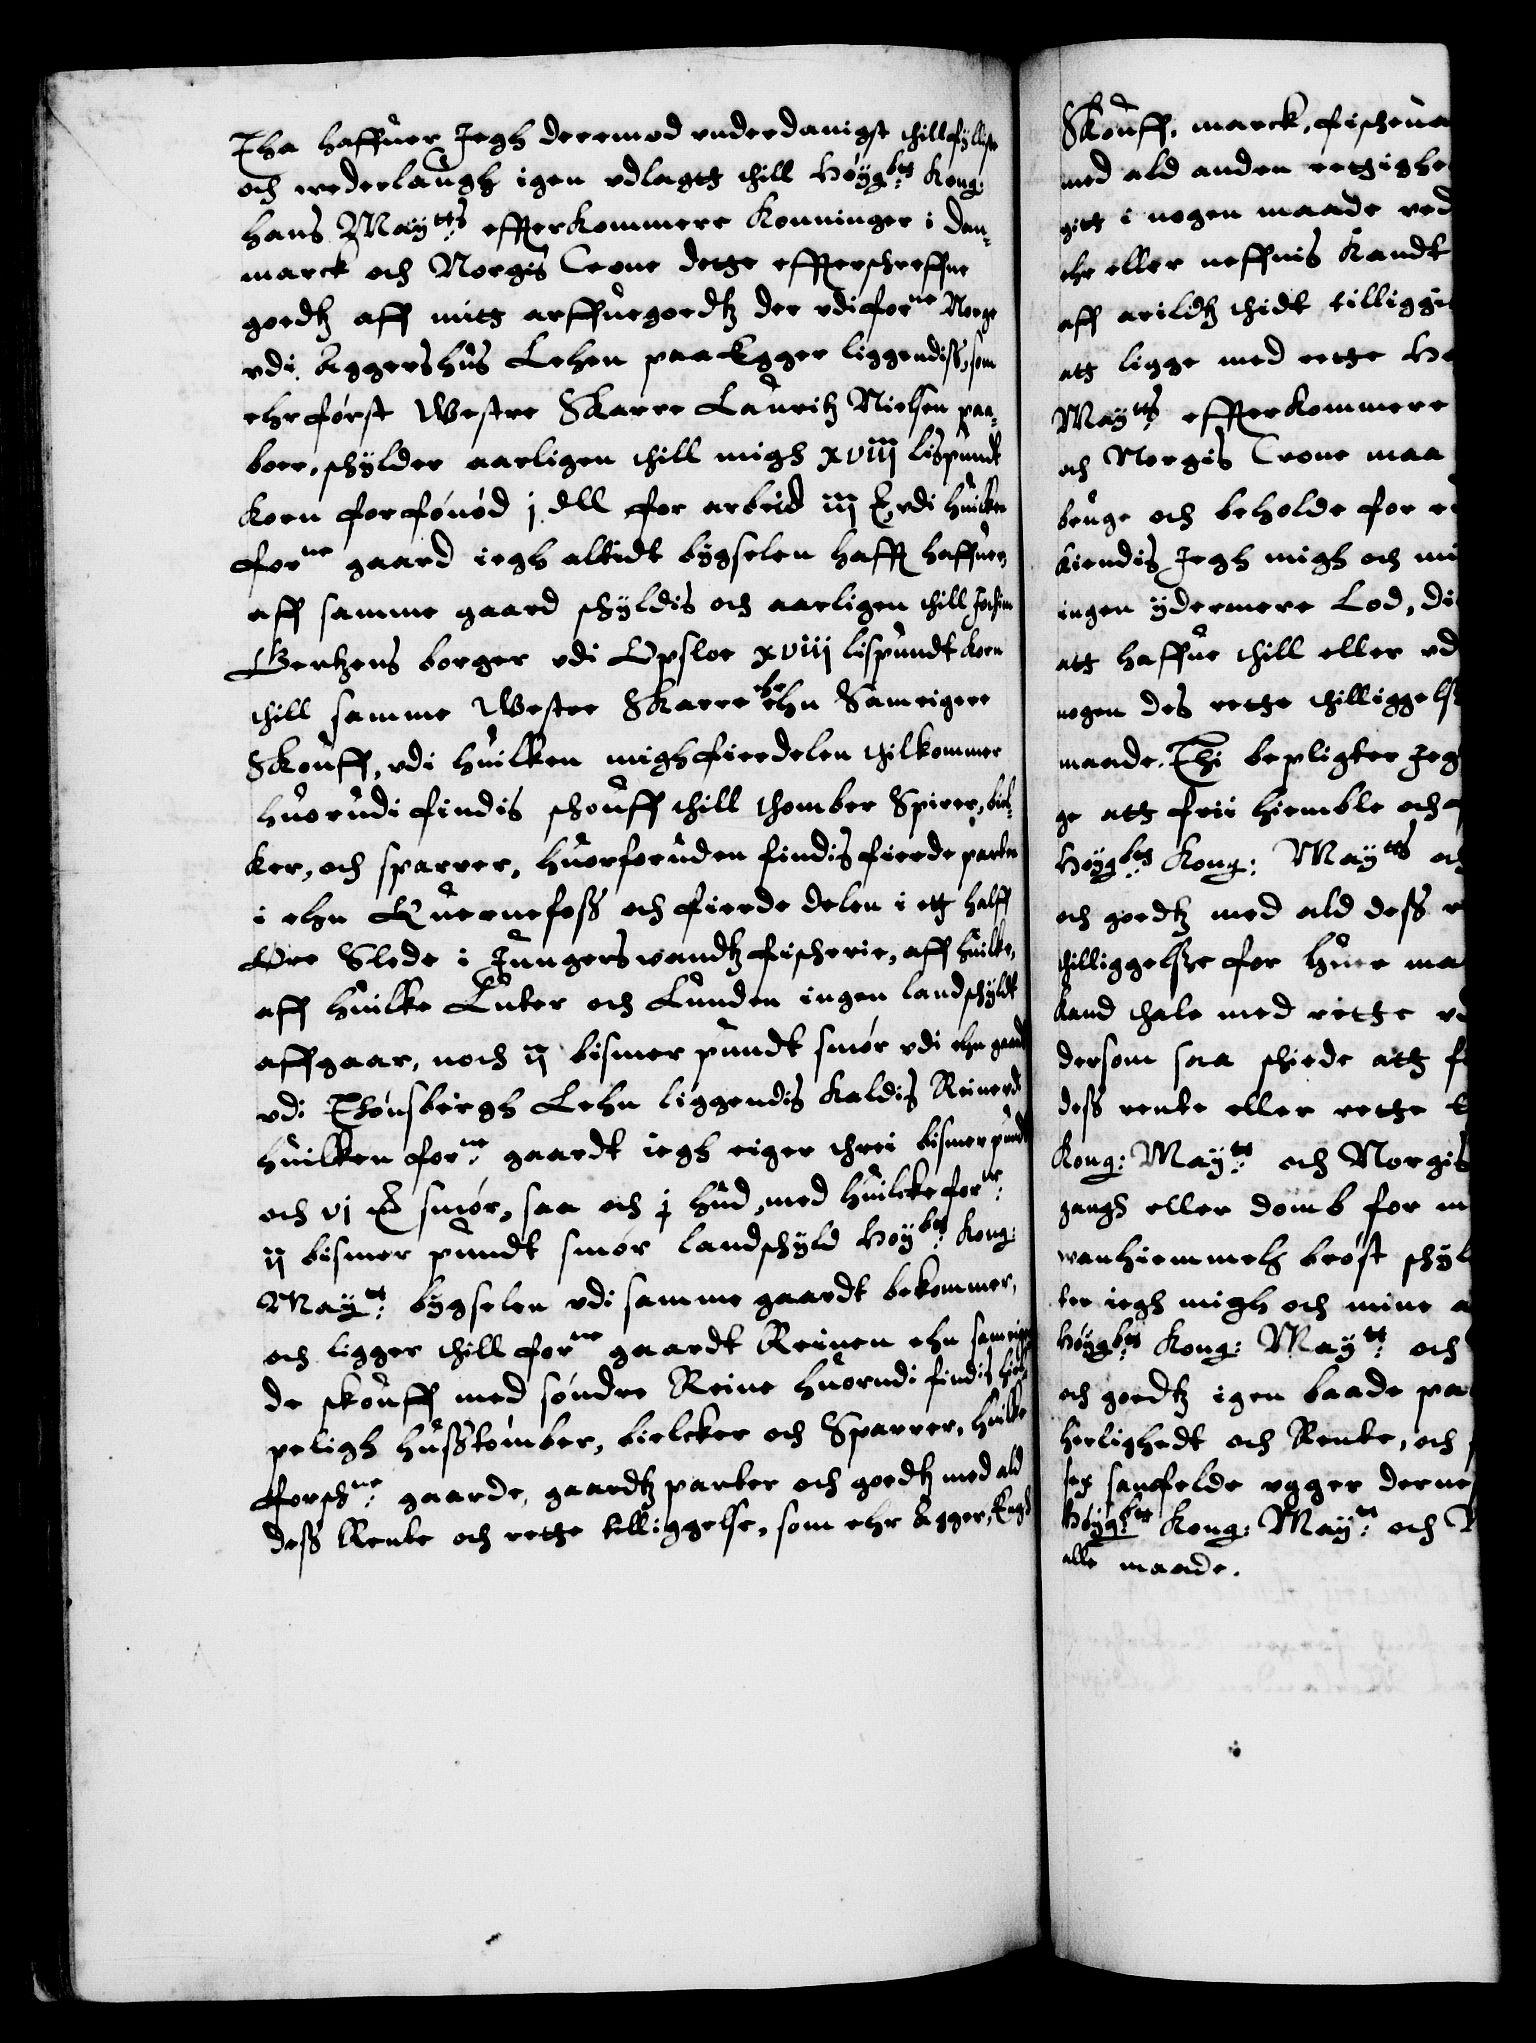 Tha haffuer Jegh deremod vnderdanigst thillfyllist
och wederlaugh igen vdlagtt thill Høygbtt Kong:
Hans Maytts effterkommere Konninger i Dan-
marck och Norgis Crone dette effterschreffne
goedtz aff mitt arffuegoedtz der vdi forne Norge
vdi Aggershus Lehen paa Egger liggendiss, som
ehr først Westre Skarre Lauritz Nielsen paa-
boer, schylder aarligen thill migh xviij lispundt
Korn forføuød j dll for arbeid iij, vdi huilken
forne gaard iegh altidt bygselen hafft haffuer,
aff samme gaard schyldis och aarligen thill Jochim
Bertzens borger vdi Opsloe xviij lispundt Korn
thill samme Westre Skarre ehr ehn Sameigere
Skouff, vdi huilken migh fierdelen thilkommer
huorudi findis schouff thill thomber Spirer, biel-
ker, och sparrer, huorforuden findis fierde parten
i ehn Quernefoss och fierde delen i ett halff
Øre Slede i Jungerswandtz fischerie, aff huilke,
aff huilke Luter och Lunden ingen landschyldt
affgaar, noch ij bismer pundt smør vdi ehn gaardt
vdi Thønsbergh Lehn liggendis kaldis Reinerdt
huilken forne gaardt iegh eiger threi bismer pundt
och vj smør, saa och j hud, med huilcke forne:
ij bismer pundt smør landschyld Høybtt Kong:
Maytt: bygselen vdi samme gaardt bekommer,
och ligger thill forne gaardt Reinen ehn sameigen
de skouff med søndre Reine huorudi findis
peligh husstømber, bielcker och Sparrer, huilke
forschne: gaarde, gaardtz parter och goedtz med ald
dess Rente och rette tilliggelse, som ehr Agger, Eng
Skouff, marck, fischeua
med ald anden rettighe
gitt i nogen maade ved
ehr eller neffnis kandt
aff arildtz thidt tilliggit
att ligge med rette Hø
Maytts effterkommere
och Norgis Crone maa
bruge och beholde for
kiendis Jegh migh och mi
ingen ydermere Lod, di
att haffue thill eller vd
nogen des rette thilliggelse
maade. Thi bepligter Jeg
ge att frii hiemble och
Høygbtt Kong: Maytts oc
och goedtz med ald dess
thilliggelsse for huer ma
kand thale med rette vd
dersom saa schiede att
dess rente eller rette
Kong: Maytt: och Norgis
gangh eller domb for m
wanhiemmels brøst schyl
ter iegh migh och mine a
Høygbtt Kong: Maytt: och
och goedtz igen baade pa
herlighedt och Rente, och
sex samfelde vgger derne
Høygbtt Kong: Maytt: och
alle maade.